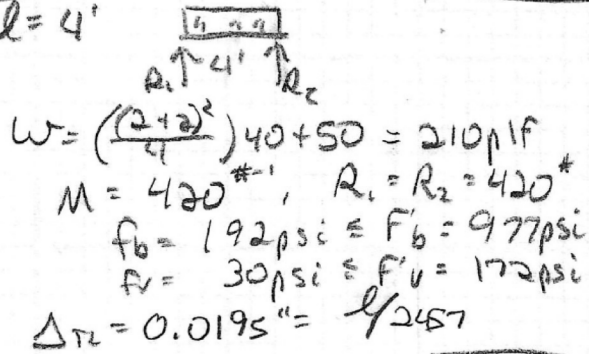 l = 4'
R₁ 4' R₂
W = ((2+2)²/4) 40 + 50 = 210 plf
M = 420 #-', R₁ = R₂ = 420 #
fb = 192 psi ≤ F'b = 977 psi
fv = 30 psi ≤ F'v = 172 psi
ΔTL = 0.0195" = l/2457